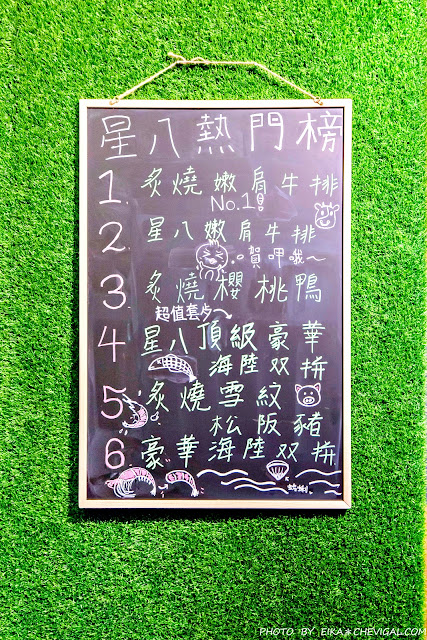 星八熱門榜
1 炙燒嫩肩牛排
No.1!
2 星八嫩肩牛排
賀呷哦~
3 炙燒櫻桃鴨
超值套步~
4 星八頂級豪華
海陸双拼
5 炙燒雪紋
松阪豬
6 豪華海陸双拼
PHOTO BY EIKA*CHEVIGAL.COM